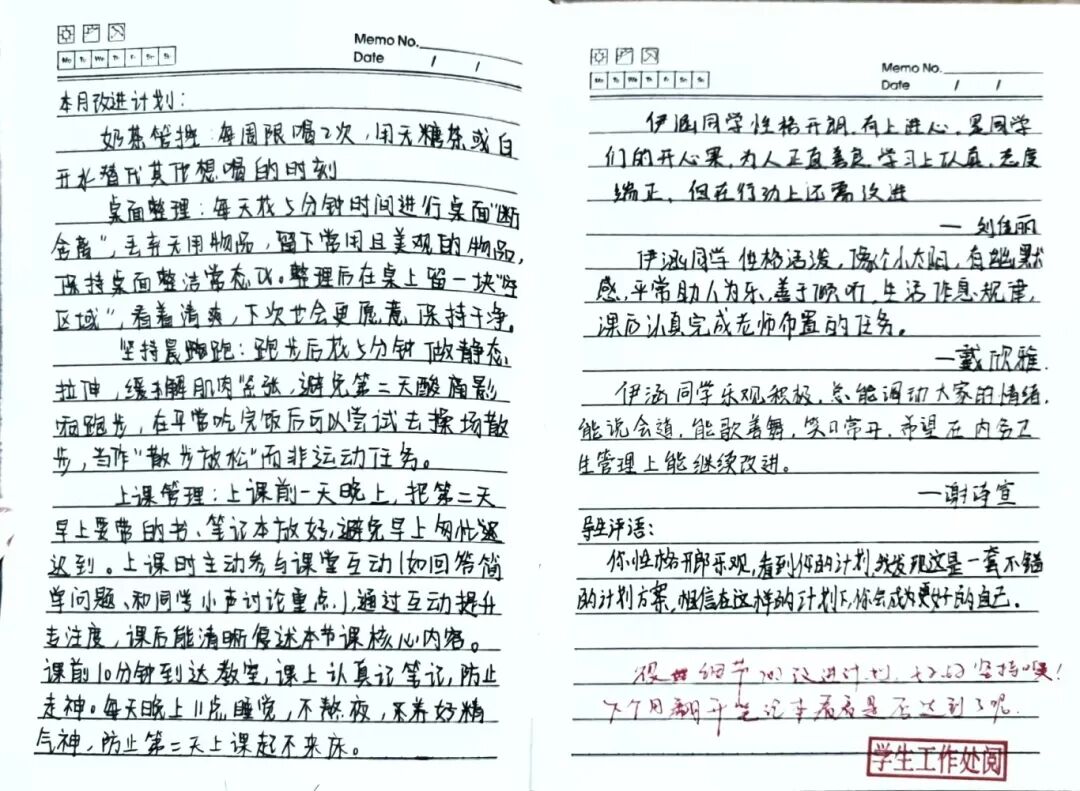 Mo Tu We Th Fr Sa Su
Memo No.
Date / /
本月改进计划：
奶茶管理：每周限喝2次，用无糖茶或白
开水替代其他想喝的时刻
桌面整理：每天花5分钟时间进行桌面"断
舍离"，丢弃无用物品，留下常用且美观的物品，
保持桌面整洁常态化。整理后在桌上留一块"
区域"，看着清爽，下次也会更愿意保持干净。
坚持晨跑：跑步后花5分钟做静态
拉伸，缓解肌肉紧张，避免第二天酸痛影
响跑步，在平常吃完饭后可以尝试去操场散
步，当作"散步放松"而非运动任务。
上课管理：上课前一天晚上，把第二天
早上要带的书、笔记本放好，避免早上匆忙
迟到。上课时主动参与课堂互动(如回答简
单问题、和同学小声讨论重点)，通过互动提升
专注度，课后能清晰复述本节课核心内容。
课前10分钟到达教室，课上认真记笔记，防止
走神。每天晚上11点睡觉，不熬夜，养好精
气神，防止第二天上课起不来床。
Mo Tu We Th Fr Sa Su
Memo No.
Date / /
伊涵同学性格开朗，有上进心，是同学
们的开心果，为人正直善良，学习上认真，态度
端正，但在行动上还需改进
—刘佳丽
伊涵同学性格活泼，像个小太阳，有幽默
感，平常助人为乐，善于倾听，生活作息规律，
课后认真完成老师布置的任务。
—戴欣雅
伊涵同学乐观积极，总能调动大家的情绪，
能说会道，能歌善舞，笑口常开，希望在内务卫
生管理上能继续改进。
—谢诗萱
导生评语：
你性格开朗乐观，看到你的计划，我发现这是一套不错
的计划方案，相信在这样的计划下，你会成为更好的自己。
很细节的改进计划，好好坚持噢！
下个月翻开笔记本看看是否达到了呢
学生工作处阅